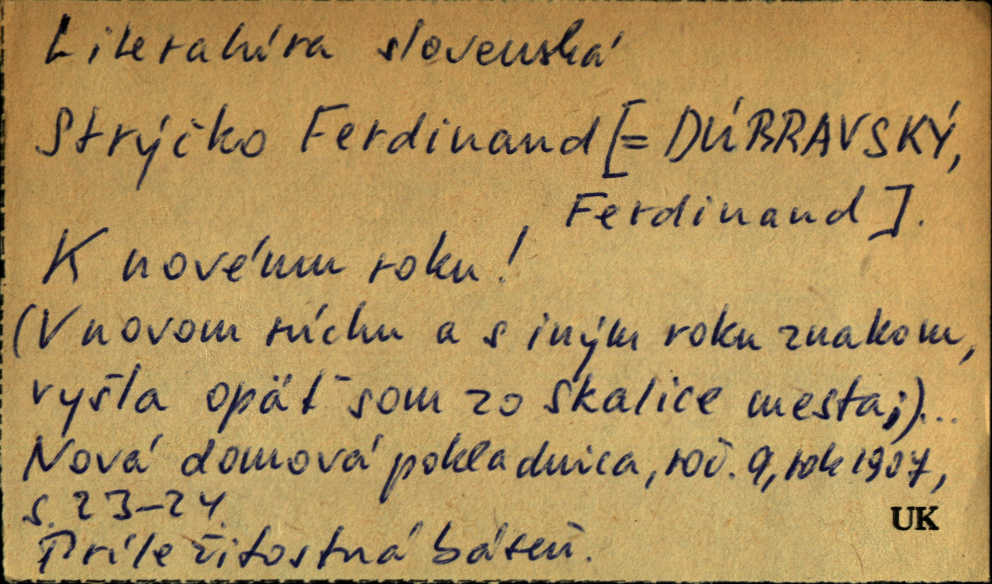 Literatúra slovenská
Strýčko Ferdinand [= DÚBRAVSKÝ,
Ferdinand].
K novému roku!
(V novom rúchu a s iným roku znakom,
vyšla opäť som zo Skalice mesta;)...
Nová domová pokladnica, roč. 9, rok 1907,
s. 23-24
UK
Príležitostná báseň.